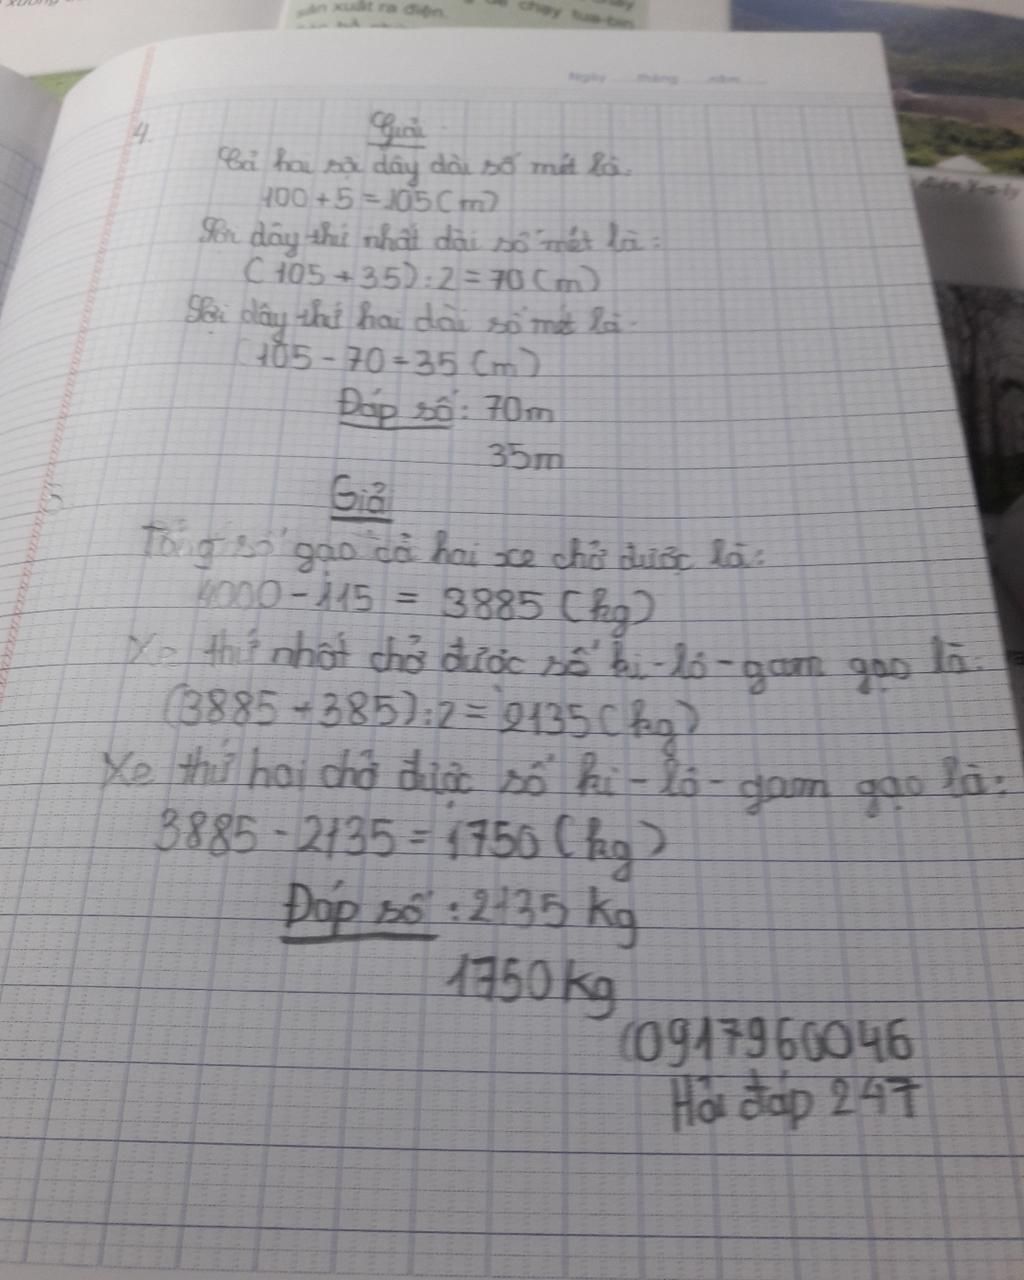 sản xuất ra điện.
chạy tua-bin
Ngày tháng năm
4.
Giải
Cả hai sợi dây dài số mét là:
100 + 5 = 105 (m)
Sợi dây thứ nhất dài số mét là:
(105 + 35) : 2 = 70 (m)
Sợi dây thứ hai dài số mét là:
105 - 70 = 35 (m)
Đáp số: 70m
35m
5.
Giải
Tổng số gạo cả hai xe chở được là:
4000 - 115 = 3885 (kg)
Xe thứ nhất chở được số ki-lô-gam gạo là:
(3885 + 385) : 2 = 2135 (kg)
Xe thứ hai chở được số ki-lô-gam gạo là:
3885 - 2135 = 1750 (kg)
Đáp số: 2135 kg
1750 kg
0917960046
Hỏi đáp 247